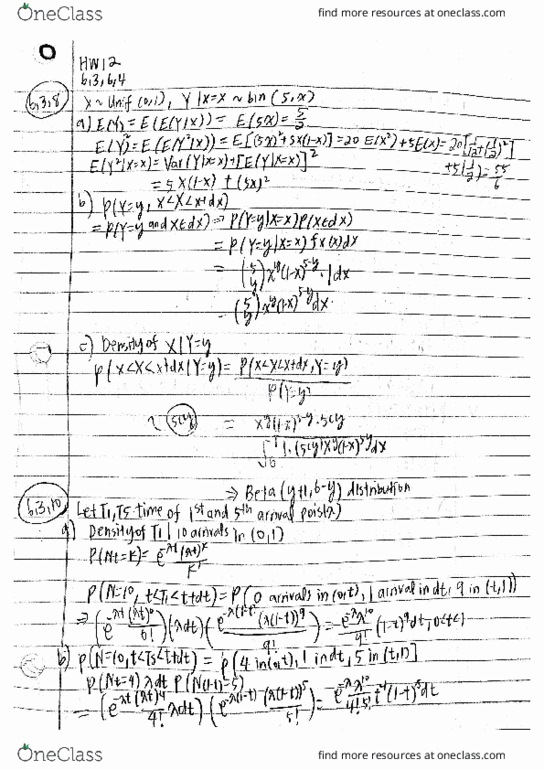 OneClass
find more resources at oneclass.com
HW12
6.3, 6.4
6.3.8
X ~ Unif (0,1), Y|X=x ~ bin (5,x)
a) E(Y) = E(E(Y|X)) = E(5X) = 5/2
E(Y²) = E(E(Y²|X)) = E[(5X)²+5X(1-X)] = 20 E(X²) + 5E(X) = 20[1/12+(1/2)²]
+5(1/2) = 55/6
E(Y²|X=x) = Var(Y|X=x)+[E(Y|X=x)]²
= 5X(1-X) + (5X)²
b) P(Y=y, x<X<x+dx)
= P(Y=y and X∈dx) = P(Y=y|X=x)P(X∈dx)
= P(Y=y|X=x) fx(x)dx
= (5 y) x^y (1-x)^5-y · 1 dx
(5 y) x^y (1-x)^5-y dx
c) Density of X|Y=y
P(x<X<x+dx|Y=y) = P(x<X<x+dx, Y=y)
P(Y=y)
= x^y (1-x)^5-y · 5Cy
⇒ Beta (y+1, 6-y) distribution
6.3.10
Let T1, T5 time of 1st and 5th arrival
a) Density of T1 | 10 arrivals in (0,1)
P(Nt=k) = e^-λt (λt)^k / k!
P(N=10, t<T1<t+dt) = P(0 arrivals in (0,t), 1 arrival in dt, 9 in (t,1))
⇒ (e^-λt (λt)^0 / 0!) (λdt) (e^-λ(1-t) (λ(1-t))^9 / 9!) = e^-λ λ^10 / 9! (1-t)^9 dt, 0<t<1
b) P(N=10, t<T5<t+dt) = P(4 in (0,t), 1 in dt, 5 in (t,1))
P(Nt=4) λdt P(N(1-t)=5)
= (e^-λt (λt)^4 / 4! λdt) · (e^-λ(1-t) (λ(1-t))^5 / 5!) = e^-λ λ^10 / 4!5! t^4 (1-t)^5 dt
OneClass
find more resources at oneclass.com